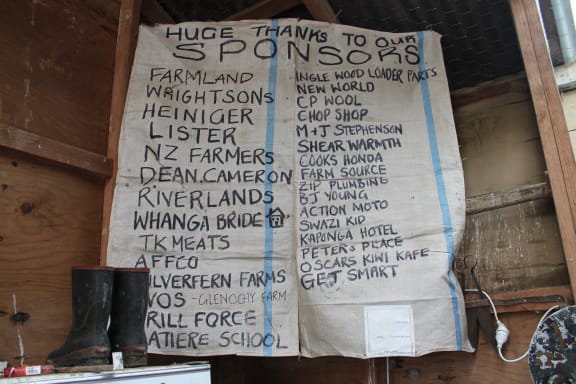 HUGE THANKS TO OUR
SPONSORS
FARMLAND
WRIGHTSONS
HEINIGER
LISTER
NZ FARMERS
DEAN.CAMERON
RIVERLANDS
WHANGA BRIDE
TK MEATS
AFFCO
ILVERFERN FARMS
VOS - GLENOCHY FARM
RILL FORCE
ATIERE SCHOOL
INGLE WOOD LOADER PARTS
NEW WORLD
CP WOOL
CHOP SHOP
M+J STEPHENSON
SHEAR WARMTH
COOKS HONDA
FARM SOURCE
ZIP PLUMBING
BJ YOUNG
ACTION MOTO
SWAZI KID
KAPONGA HOTEL
PETERS PLACE
OSCARS KIWI KAFE
GET SMART